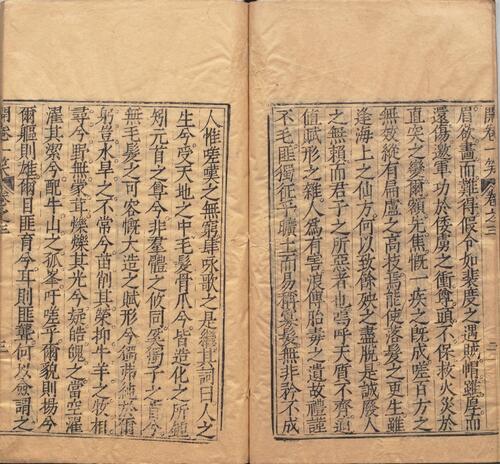 開卷一笑 卷之三 二
眉欲畫而難得假令如裴度之遇賊帽雖厚而
還傷邀軍功於虜之衝尊頭不保救火災於
直突之變爛額先焦慨一疾之既成嗟百方之
無效縱有扁盧之高技焉能使落髮之更生雖
逢海上之仙方何以致餘殃之盡脫是誠廢人
之無賴而君子之所惡者也嗚呼天質不齊
值賦形之雜人爲有害浪傳胎毒之遺故禮謹
不毛匪獨征乎曠土而易稱寡髮無非矜不成
人惟嗟嘆之無窮肆咏歌之是繼其詞曰人之
生兮受天地之中毛髮骨爪兮皆造化之所鍾
矧元首之尊兮非羣體之攸同奚獨子之首兮
無毛髮之可容慨大造之賦形兮獨薄於爾
躬豈水旱之不常兮苗削其榮抑牛羊之牧相
尋兮野無蒙茸爍爍其光兮疑皓魄之當空濯
濯其潔兮配牛山之孤峯吁嗟乎爾貌則揚兮
爾軀則雄爾目匪盲兮耳則匪聾何以僉謂之
開卷一笑 卷之三 三